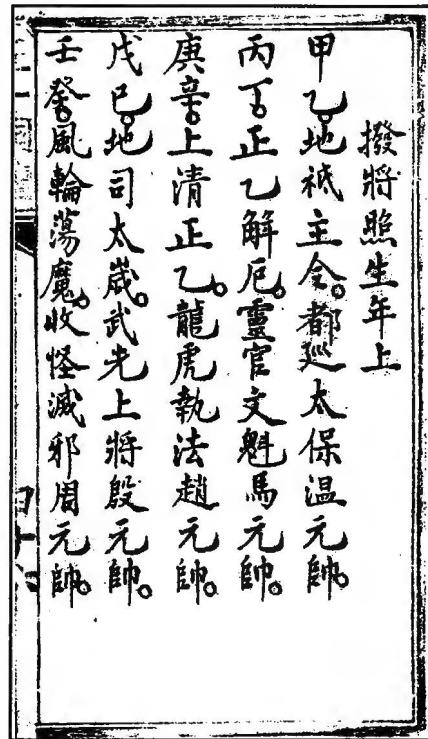 撥將照生年上
甲乙。地祇主令。都廵太保温元帥。
丙丁。正乙解厄。靈官文魁馬元帥。
庚辛。上清正乙。龍虎執法趙元帥。
戊己。地司太歲。武光上將殷元帥。
壬癸。風輪蕩魔。收怪滅邪周元帥。